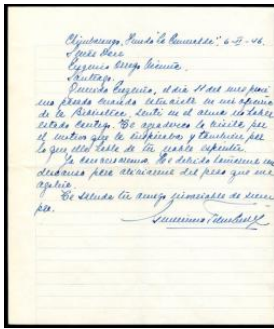 Chimbarongo, Fundo "La Esmeralda", 6-II-46.
Señor Don
Eugenio Orrego Vicuña
Santiago.
Querido Eugenio, el día 11 del mes próxi
mo pasado cuando estuviste en mi oficina
de la Biblioteca, sentí en el alma no haber
estado contigo. Te agradezco la visita, por
el motivo que la inspiraba y también por
lo que ello habla de tu noble espíritu.
Ya
descanso para aliviarme del peso que me
agobia.
Te saluda tu amigo invariable de siem
pre.